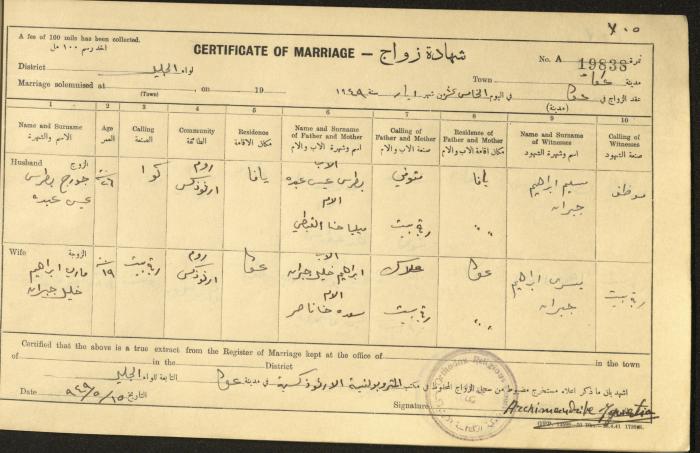 ٧٠٥
A fee of 100 mils has been collected.
اخذ رسم ١٠٠ مل
CERTIFICATE OF MARRIAGE – شهادة زواج
No. A 19838 نمرة
District لواء الجليل
Town مدينة عكا
Marriage solemnised at , on 19
(Town)
عقد الزواج في عكا في اليوم الخامس عشر من شهر ايار سنة ١٩٤٩
(مدينة)
1 2 3 4 5 6 7 8 9 10
Name and Surname الاسم والشهرة
Age العمر
Calling الصنعة
Community الطائفة
Residence مكان الاقامة
Name and Surname of Father and Mother اسم وشهرة الاب والام
Calling of Father and Mother صنعة الاب والام
Residence of Father and Mother مكان اقامة الاب والام
Name and Surname of Witnesses اسم وشهرة الشهود
Calling of Witnesses صنعة الشهود
Husband الزوج
جورج بطرس عيسى عبده
سنة ٢٦
روم ارثوذكس
يافا
الاب
بطرس عيسى عبده
الام
حنا القبطي
متوفي
ربة بيت
يافا
" "
سليم ابراهيم جبران
موظف
Wife الزوجة
ماري ابراهيم خليل جبران
سنة ١٩
ربة بيت
روم ارثوذكس
عكا
الاب
ابراهيم خليل جبران
الام
سعده خاناصر
ملاك
ربة بيت
عكا
" "
يسرى ابراهيم جبران
ربة بيت
Certified that the above is a true extract from the Register of Marriage kept at the office of in the town
of in the District
اشهد بان ما ذكر اعلاه مستخرج مضبوط من سجل الزواج المحفوظ في مكتب المتروبوليتية الارثوذكسية في مدينة عكا التابعة للواء الجليل
Date ١٥/٥/٩٤٩ التاريخ
Signature Archimandrite